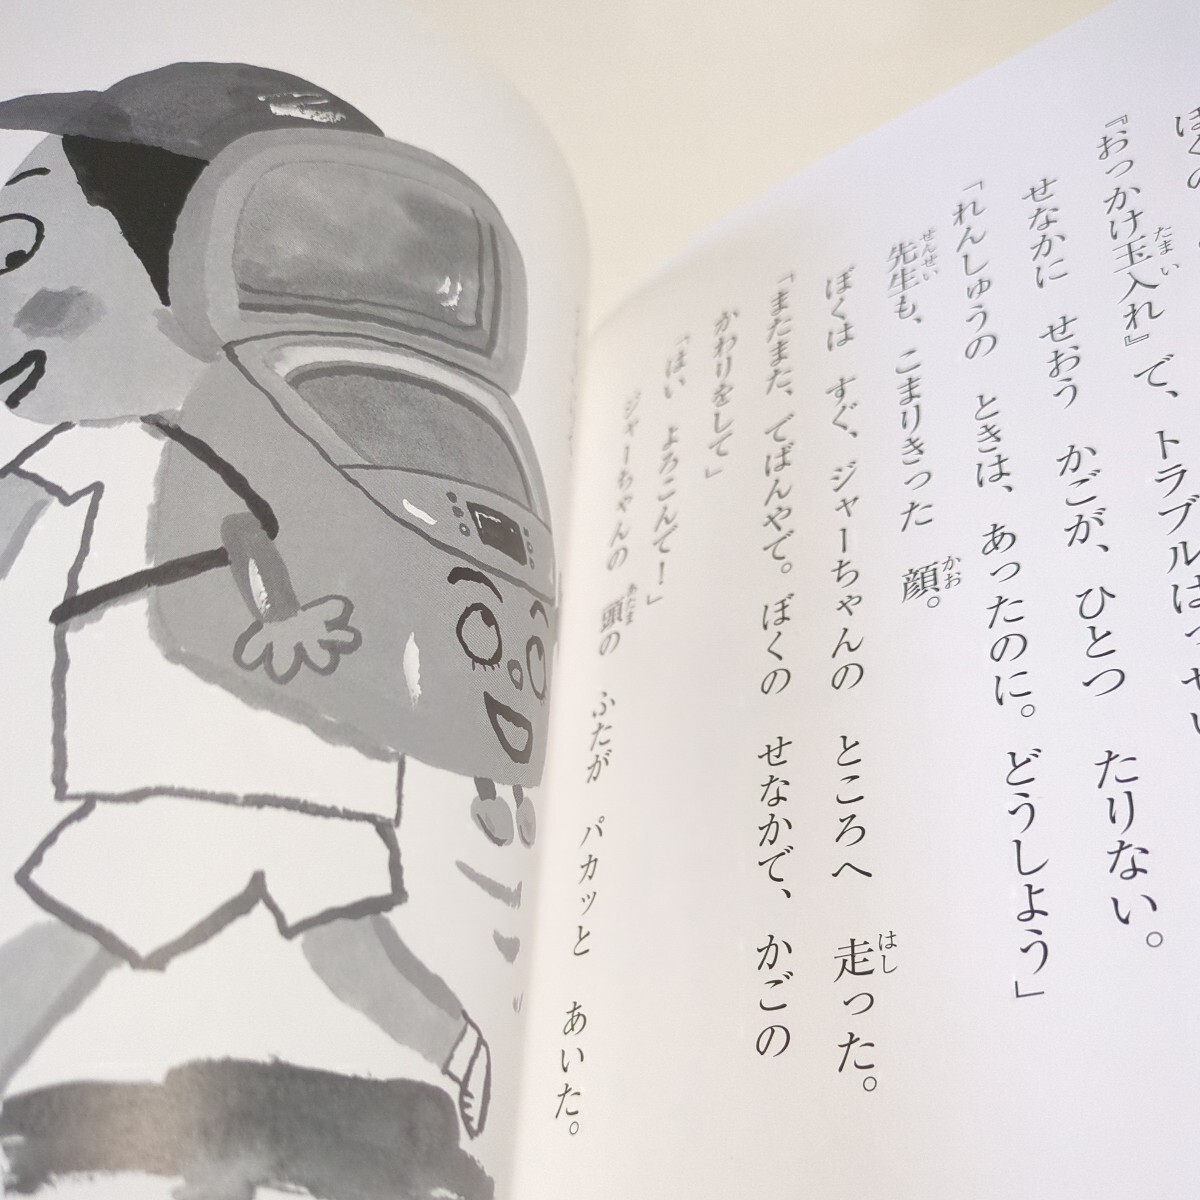 ぼくの
『おっかけ玉入れ』で、トラブルは
せなかに せおう かごが、ひとつ たりない。
「れんしゅうの ときは、あったのに。どうしよう」
先生も、こまりきった 顔。
ぼくは すぐ、ジャーちゃんの ところへ 走った。
「またまた、でばんやで。ぼくの せなかで、かごの
かわりをして」
「はい、よろこんで！」
ジャーちゃんの 頭の ふたが パカッと あいた。